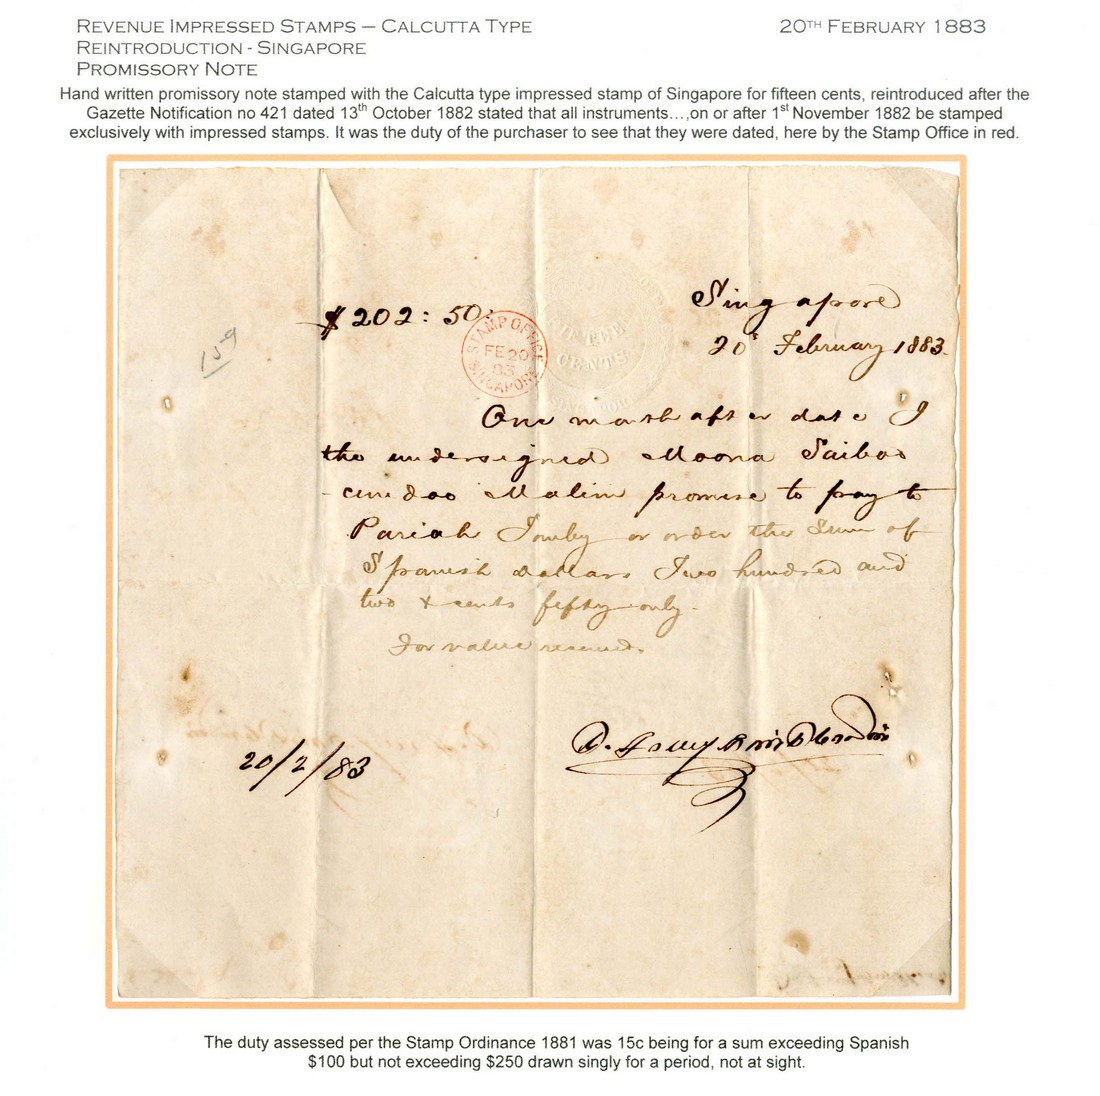 REVENUE IMPRESSED STAMPS – CALCUTTA TYPE
20TH FEBRUARY 1883
REINTRODUCTION - SINGAPORE
PROMISSORY NOTE
Hand written promissory note stamped with the Calcutta type impressed stamp of Singapore for fifteen cents, reintroduced after the
Gazette Notification no 421 dated 13th October 1882 stated that all instruments…,on or after 1st November 1882 be stamped
exclusively with impressed stamps. It was the duty of the purchaser to see that they were dated, here by the Stamp Office in red.
Singapore
$202:50.
20 February 1883.
159
STAMP OFFICE
FE 20
83
SINGAPORE
FIFTEEN
CENTS
SINGAPORE
One month after date I
the undersigned Moona Saiboo
Malim promise to pay to
Pariah or order the sum of
Spanish dollars Two hundred and
two & cents fifty only.
For value received.
20/2/83
The duty assessed per the Stamp Ordinance 1881 was 15c being for a sum exceeding Spanish
$100 but not exceeding $250 drawn singly for a period, not at sight.